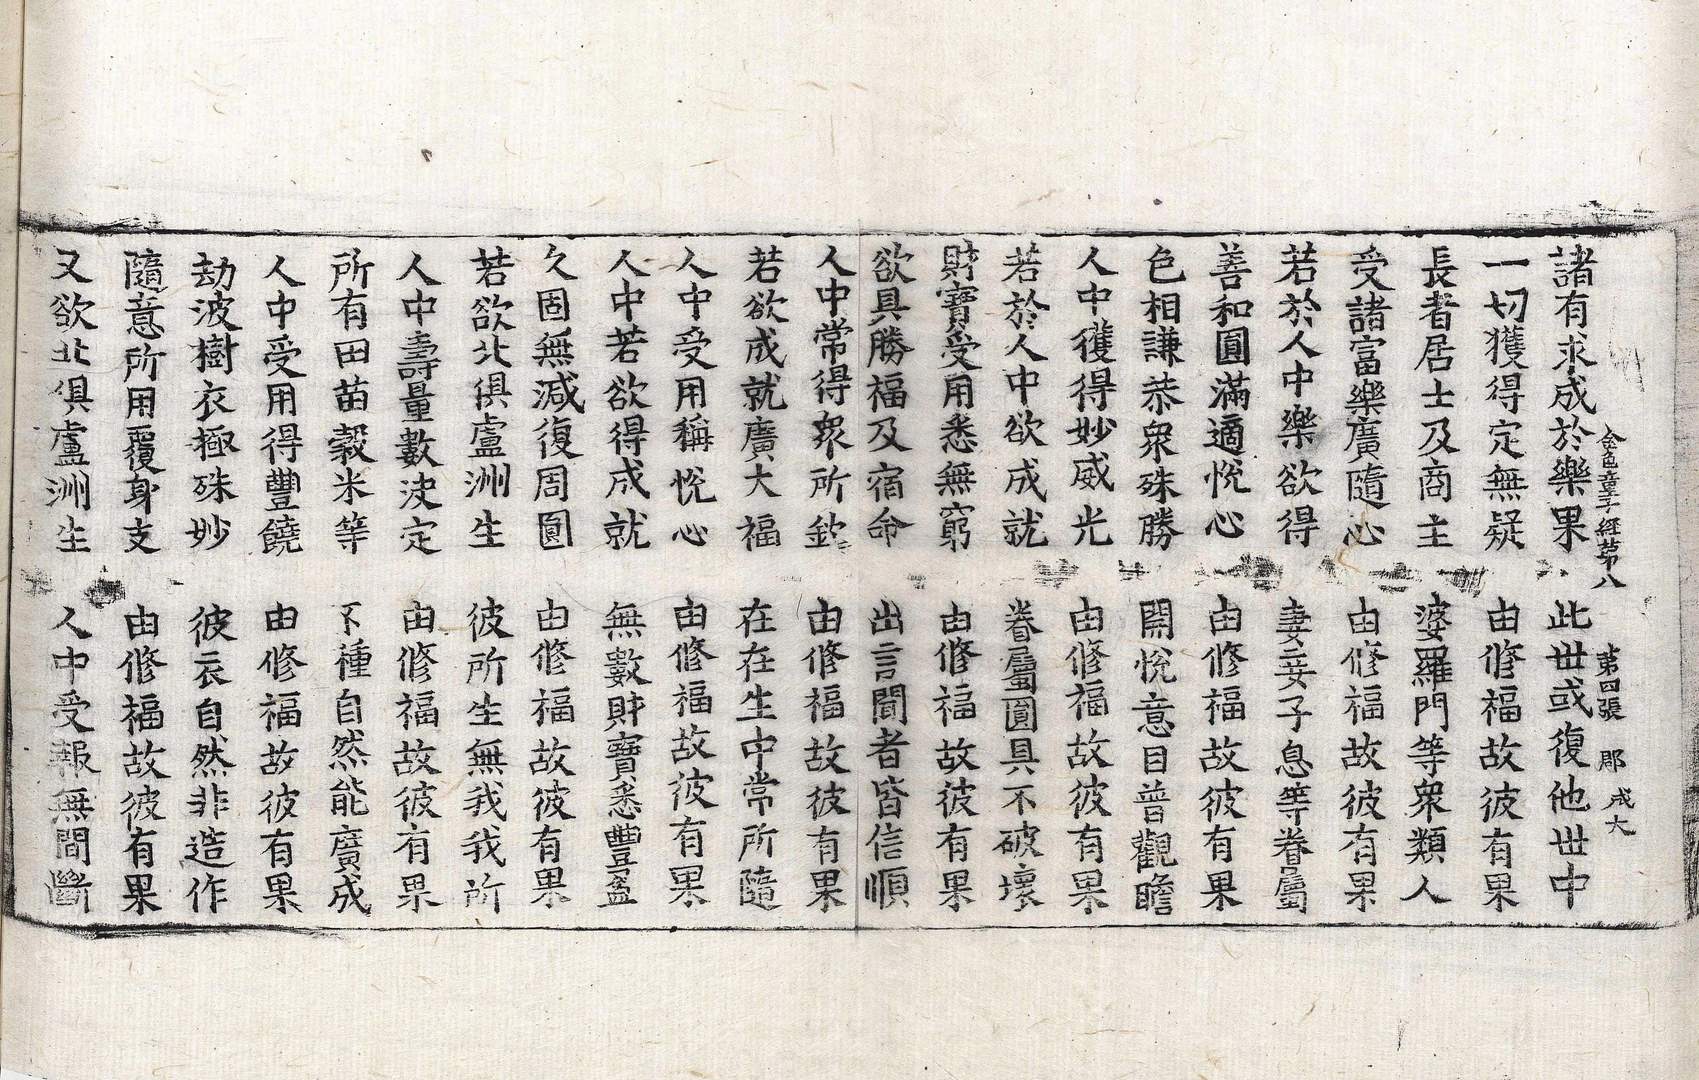 金色童子經第八 第四張 郡 成大
諸有求成於樂果 此世或復他世中
一切獲得定無疑 由修福故彼有果
長者居士及商主 婆羅門等衆類人
受諸富樂廣隨心 由修福故彼有果
若於人中樂欲得 妻妾子息等眷屬
善和圓滿適悅心 由修福故彼有果
色相謙恭衆殊勝 開悅意目普觀瞻
人中獲得妙威光 由修福故彼有果
若於人中欲成就 眷屬圓具不破壞
財寶受用悉無窮 由修福故彼有果
欲具勝福及宿命 出言聞者皆信順
人中常得衆所欽 由修福故彼有果
若欲成就廣大福 在在生中常所隨
人中受用稱悅心 由修福故彼有果
人中若欲得成就 無數財寶悉豐盈
久固無減復周圓 由修福故彼有果
若欲北俱盧洲生 彼所生無我我所
人中壽量數決定 由修福故彼有果
所有田苗穀米等 不種自然能廣成
人中受用得豐饒 由修福故彼有果
劫波樹衣極殊妙 彼衣自然非造作
隨意所用覆身支 由修福故彼有果
又欲北俱盧洲生 人中受報無間斷